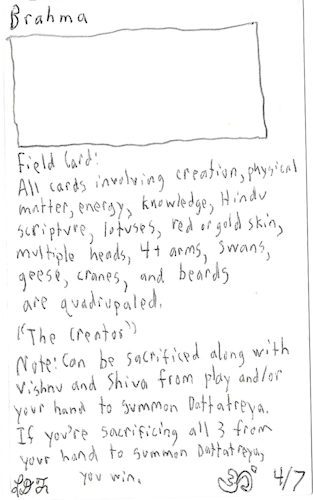 Brahma
Field Card:
All cards involving creation, physical
matter, energy, knowledge, Hindu
scripture, lotuses, red or gold skin,
multiple heads, 4+ arms, swans,
geese, cranes, and beards
are quadrupaled.
("The Creator")
Note: Can be sacrificed along with
Vishnu and Shiva from play and/or
your hand to summon Dattatreya.
If you're sacrificing all 3 from
your hand to summon Dattatreya,
you win.
ॐ 4/7